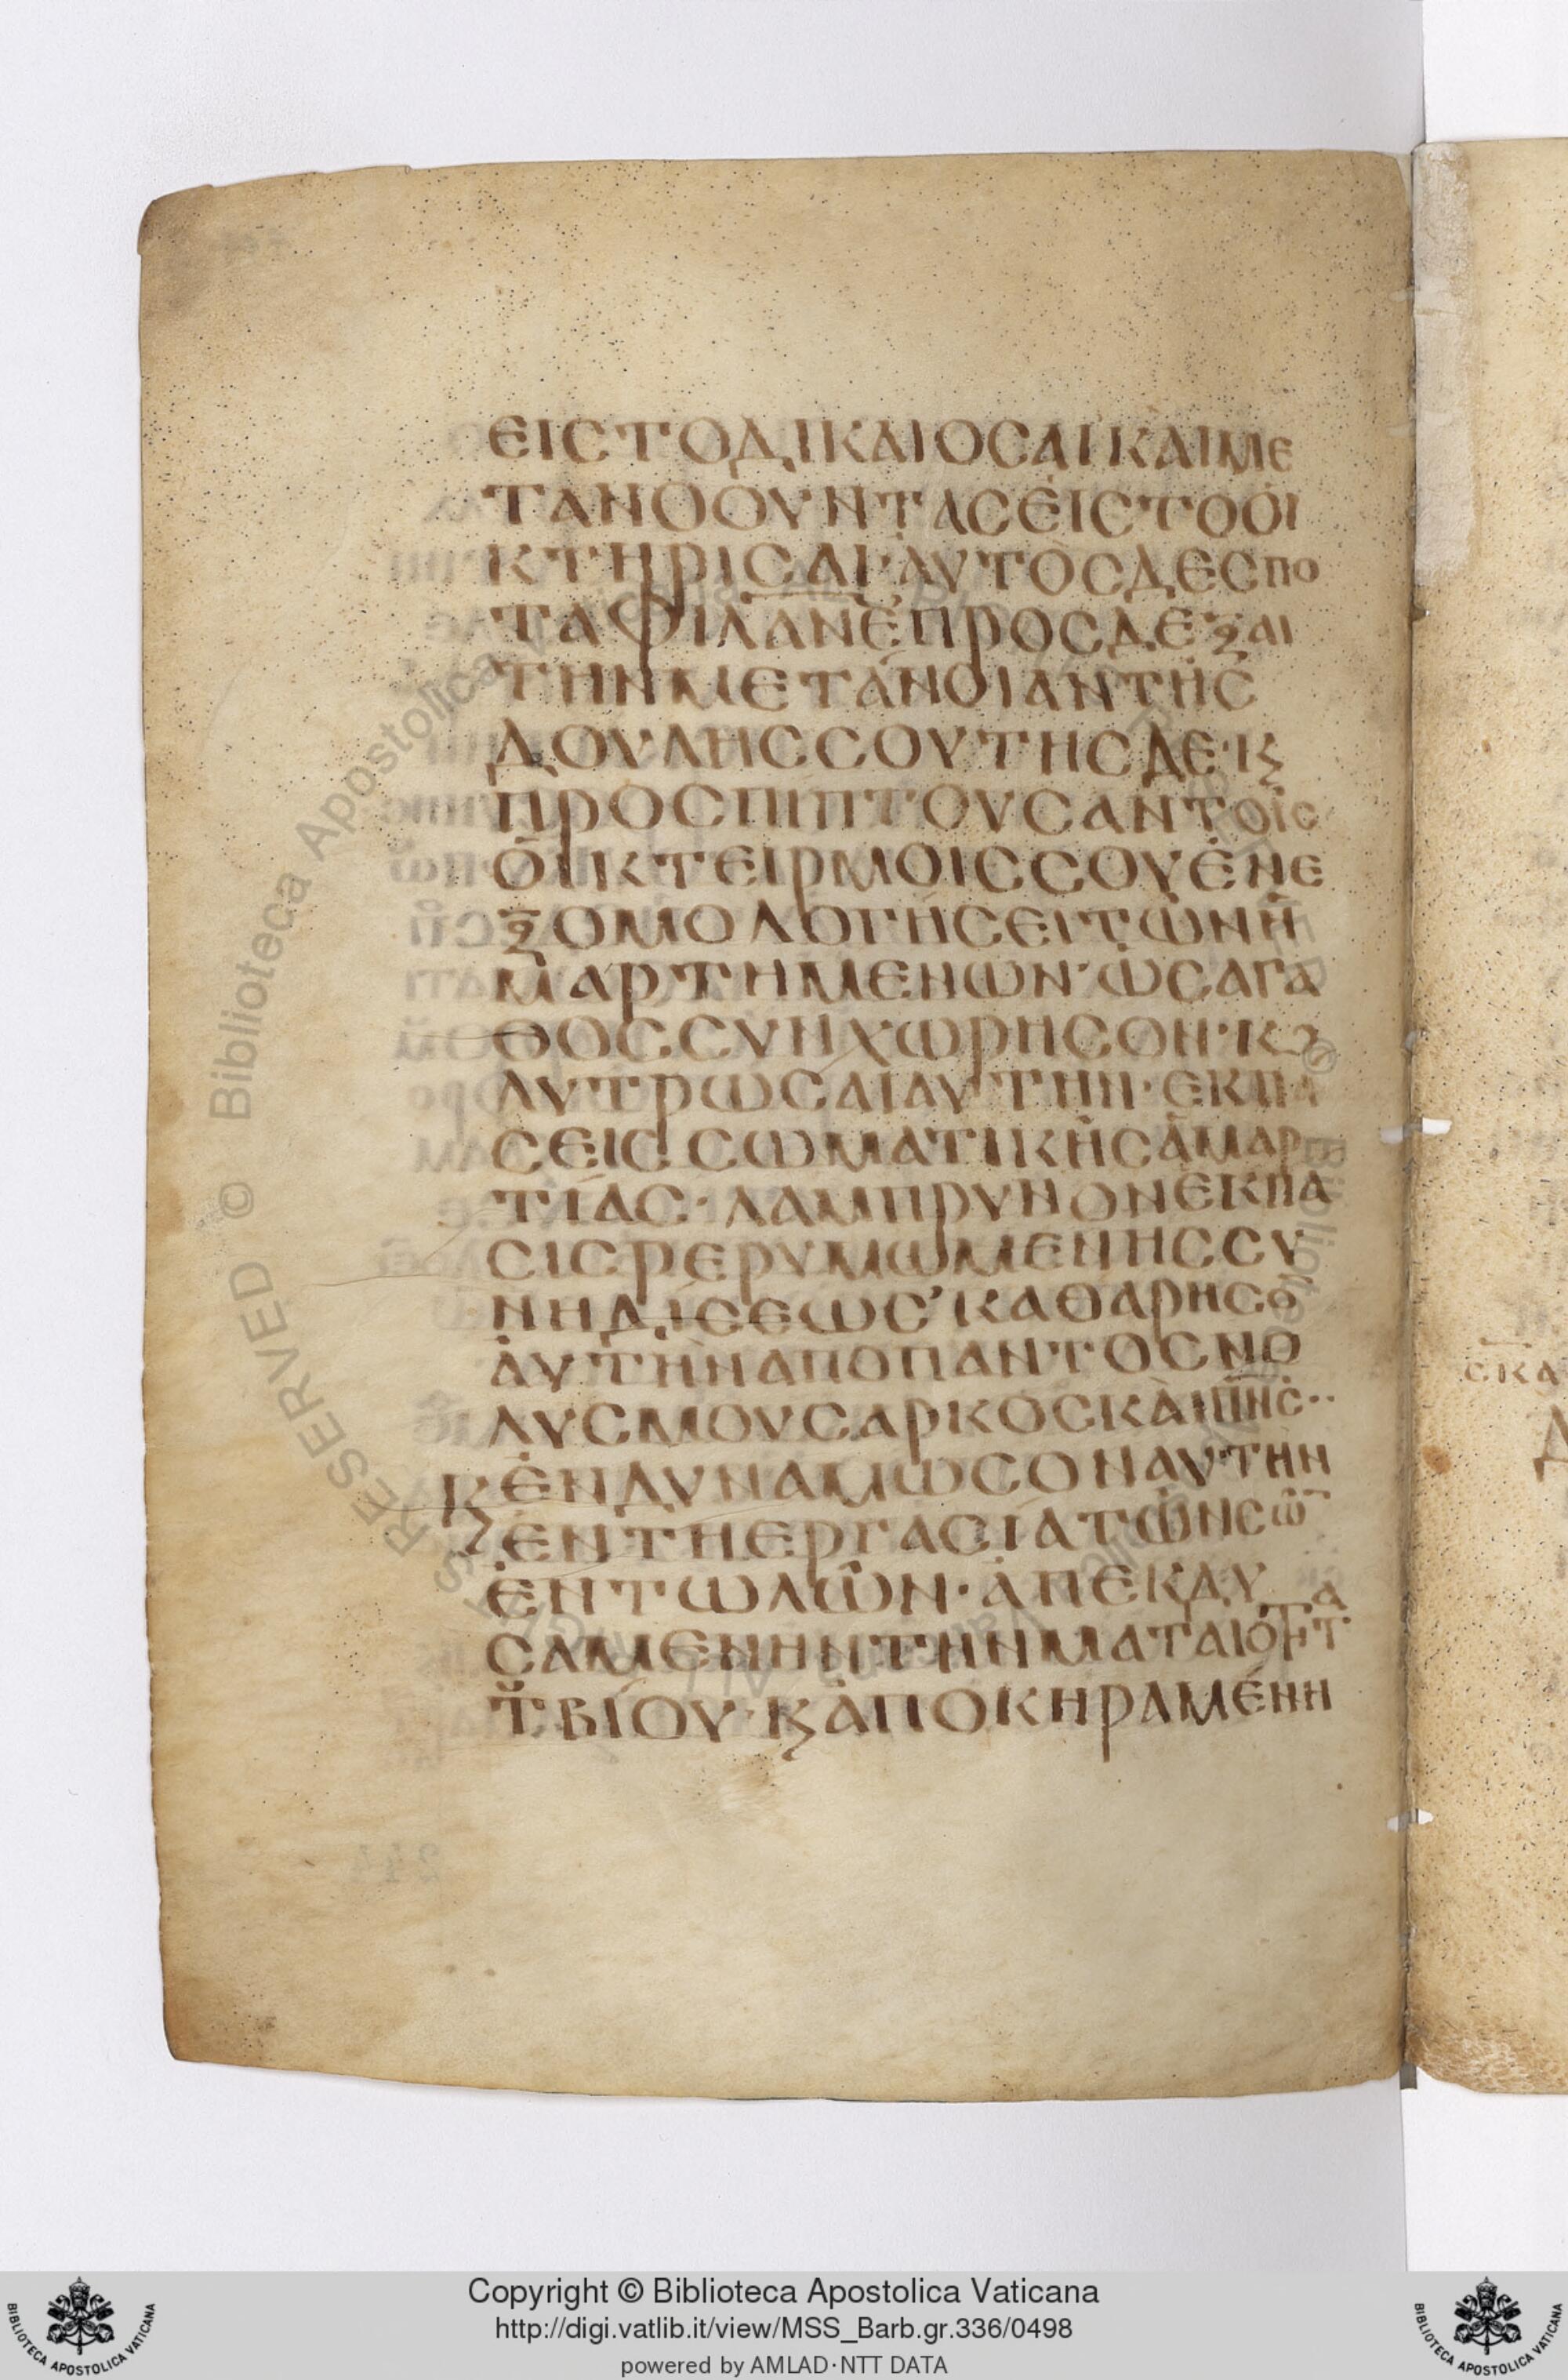 ΕΙCΤΟΔΙΚΑΙΟCΑΙΚΑΙΜΕ
ΤΑΝΟΟΥΝΤΑCΕΙCΤΟΟΙ
ΚΤΗΡΙCΑΙ·ΑΥΤΟCΔΕCΠΟ
ΤΑΦΙΛΑΝΕΠΡΟCΔΕΞΑΙ
ΤΗΝΜΕΤΑΝΟΙΑΝΤΗC
ΔΟΥΛΗCCΟΥΤΗCΔΕ·Κ
ΠΡΟCΠΙΠΤΟΥCΑΝΤΟΙC
ΟΙΚΤΕΙΡΜΟΙCCΟΥΕΝΕ
ΞΟΜΟΛΟΓΗCΕΙΤΩΝΗ
ΜΑΡΤΗΜΕΝΩΝ·ΩCΑΓΑ
ΘΟCCΥΝΧΩΡΗCΟΝ·Κ
ΛΥΤΡΩCΑΙΑΥΤΗΝ·ΕΚΠΑ
CΕΙCCΩΜΑΤΙΚΗCΑΜΑΡ
ΤΙΑC·ΛΑΜΠΡΥΝΟΝΕΚΠΑ
CΙCΡΕΡΥΜΩΜΕΝΗCCΥ
ΝΗΔΙCΕΩC’ΚΑΘΑΡΗCΟ
ΑΥΤΗΝΑΠΟΠΑΝΤΟCΜΟ
ΛΥCΜΟΥCΑΡΚΟCΚΑΙΠΝC··
Κ ΕΝΔΥΝΑΜΩCΟΝΑΥΤΗΝ
ΕΝΤΗΕΡΓΑCΙΑΤΩΝCΩ
ΕΝΤΩΛΩΝ·ΑΠΕΚΔΥ
CΑΜΕΝΗΝΤΗΝΜΑΤΑΙΟΤΗΤΑ
ΤΒΙΟΥ·ΚΑΠΟΚΗΡΑΜΕΝΗ
Copyright © Biblioteca Apostolica Vaticana
http://digi.vatlib.it/view/MSS_Barb.gr.336/0498
powered by AMLAD·NTT DATA